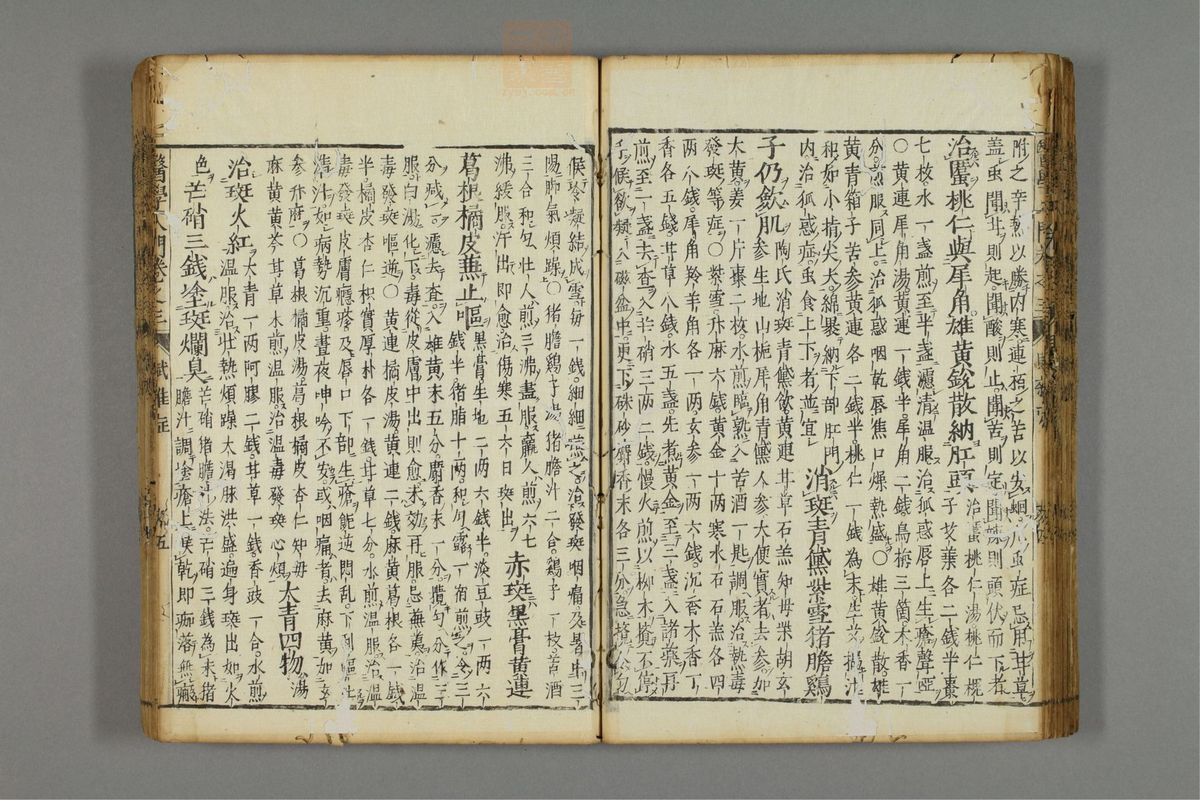 附之辛熱以勝內寒連栢之苦以安蛔凡虫症忌用甘草
盖虫聞甘則起聞酸則止聞苦則定聞辣則頭伏而下者
治䘌桃仁與犀角雄黃銳散納肛頭治䘌桃仁湯桃仁槐
子艾葉各二錢半棗
七枚水一盞煎至半盞濾清溫服治狐惑唇上生瘡聲啞
〇黃連犀角湯黃連一錢半犀角二錢烏梅三箇木香一
分煎服同上治狐惑咽乾唇焦口燥熱盛〇雄黃銳散雄
黃青箱子苦参黃連各二錢半桃仁一錢為末生艾搗汁
和如小指尖大綿裹納下部肛門
內治狐惑症虫食上下者並宜消斑青黛紫雪猪膽鷄
子仍斂肌陶氏消斑青黛飲黃連甘草石羔知母柴胡玄
参生地山梔犀角青黛人参大便實者去参加
大黃姜一片棗二枚水煎臨熟入苦酒一匙調服治熱毒
發斑等症〇紫雪升麻六錢黃金十兩寒水石石羔各四
兩八錢犀角羚羊角各一兩玄参一兩六錢沉香木香丁
香各五錢甘草八錢水五盞先煮黃金至三盞入諸藥再
煎至一盞去查入芒硝三兩二錢慢火煎以柳木攪不停
手候欲凝入磁盆中更下硃砂麝香末各三分急攪令勻
候冷凝結成雪每一錢細細嚥之治發斑咽痛及暑中三
陽脚氣煩躁〇猪膽鷄子湯猪膽汁二合鷄子一枚苦酒
三合和勻壯人煎三沸盡服羸人煎六七
沸緩服汗出即愈治傷寒五六日斑出赤斑黑膏黃連
葛根橘皮兼止嘔黑膏生地二兩六錢半淡豆豉一兩六
錢半猪脂十兩和勻露一宿煎令三
分減一濾去查入雄黃末五分麝香末一分攪勻分作三
服白湯化下毒從皮膚中出則愈未効再服忌蕪荑治溫
毒發斑嘔逆〇黃連橘皮湯黃連二錢麻黃葛根各一錢
半橘皮杏仁枳實厚朴各一錢甘草七分水煎溫服治溫
毒發斑皮膚癮疹及唇口下部生瘡能逆悶亂下利嘔吐
清汁如病勢沉重晝夜呻吟不安或咽痛者去麻黃加玄
参升麻〇葛根橘皮湯葛根橘皮杏仁知母
麻黃黃芩甘草水煎溫服治溫毒發斑心煩大青四物湯
治斑火紅大青一兩阿膠二錢甘草一錢香豉一合水煎
溫服治壯熱煩躁大渴脉洪盛遍身斑出如火
色芒硝三錢塗斑爛臭芒硝猪膽汁法芒硝三錢為末猪
膽汁調塗瘡上候乾即痂落無瘢
醫學入門卷之三